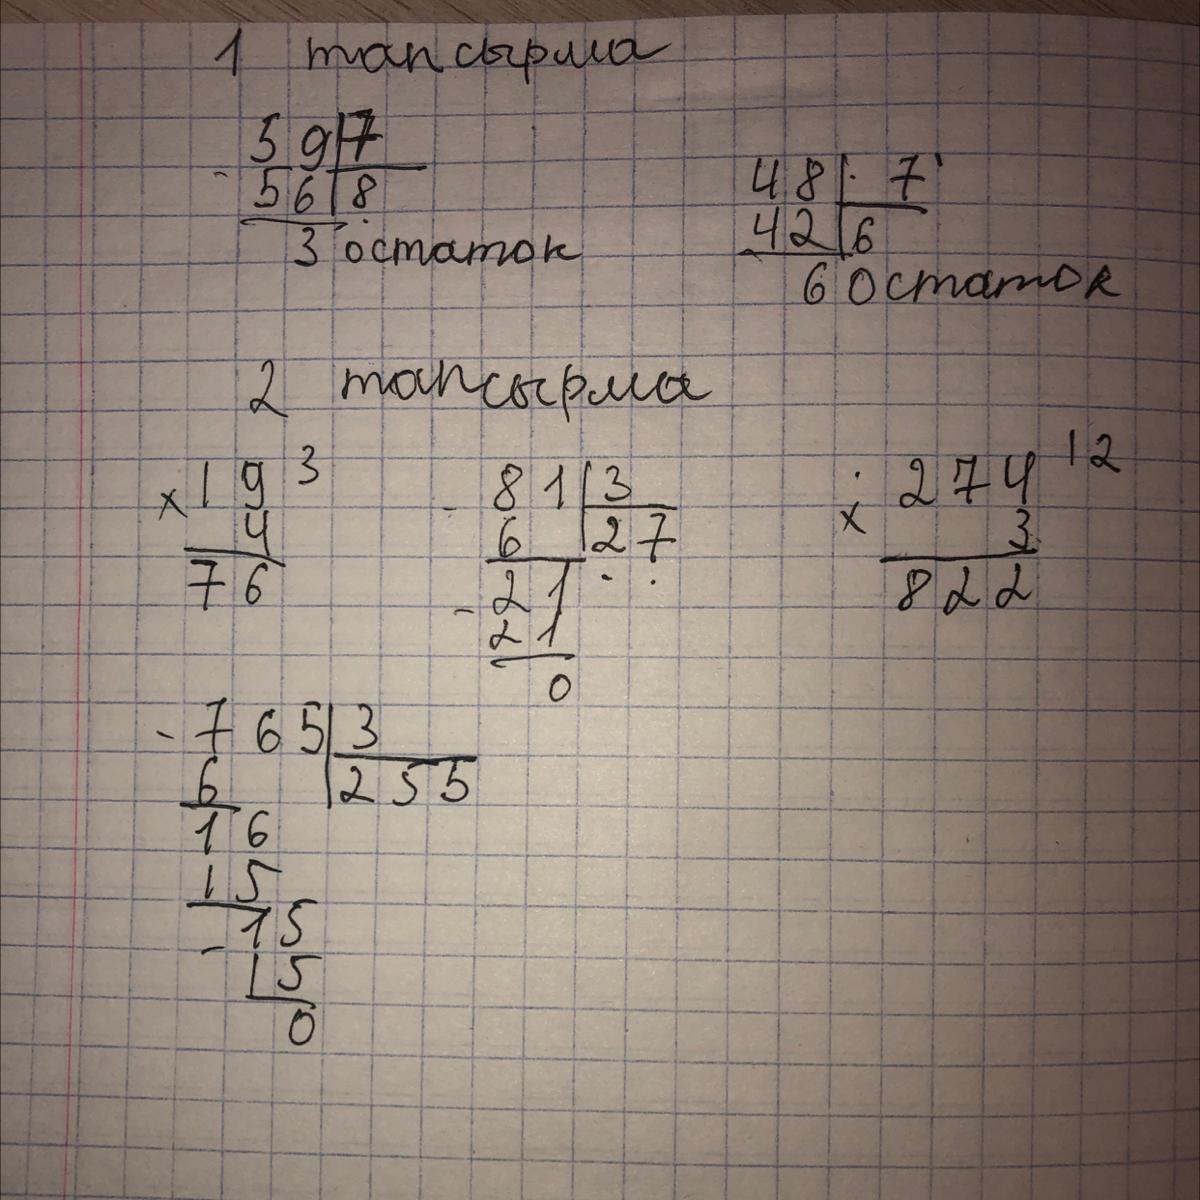 1 тапсырма
- 59|7
56|8
3 остаток
48|7
42|6
6 остаток
2 тапсырма
x 19 3
4
76
- 81|3
6 |27
- 21
21
0
x 274 12
3
822
- 765|3
6 |255
16
15
- 15
15
0